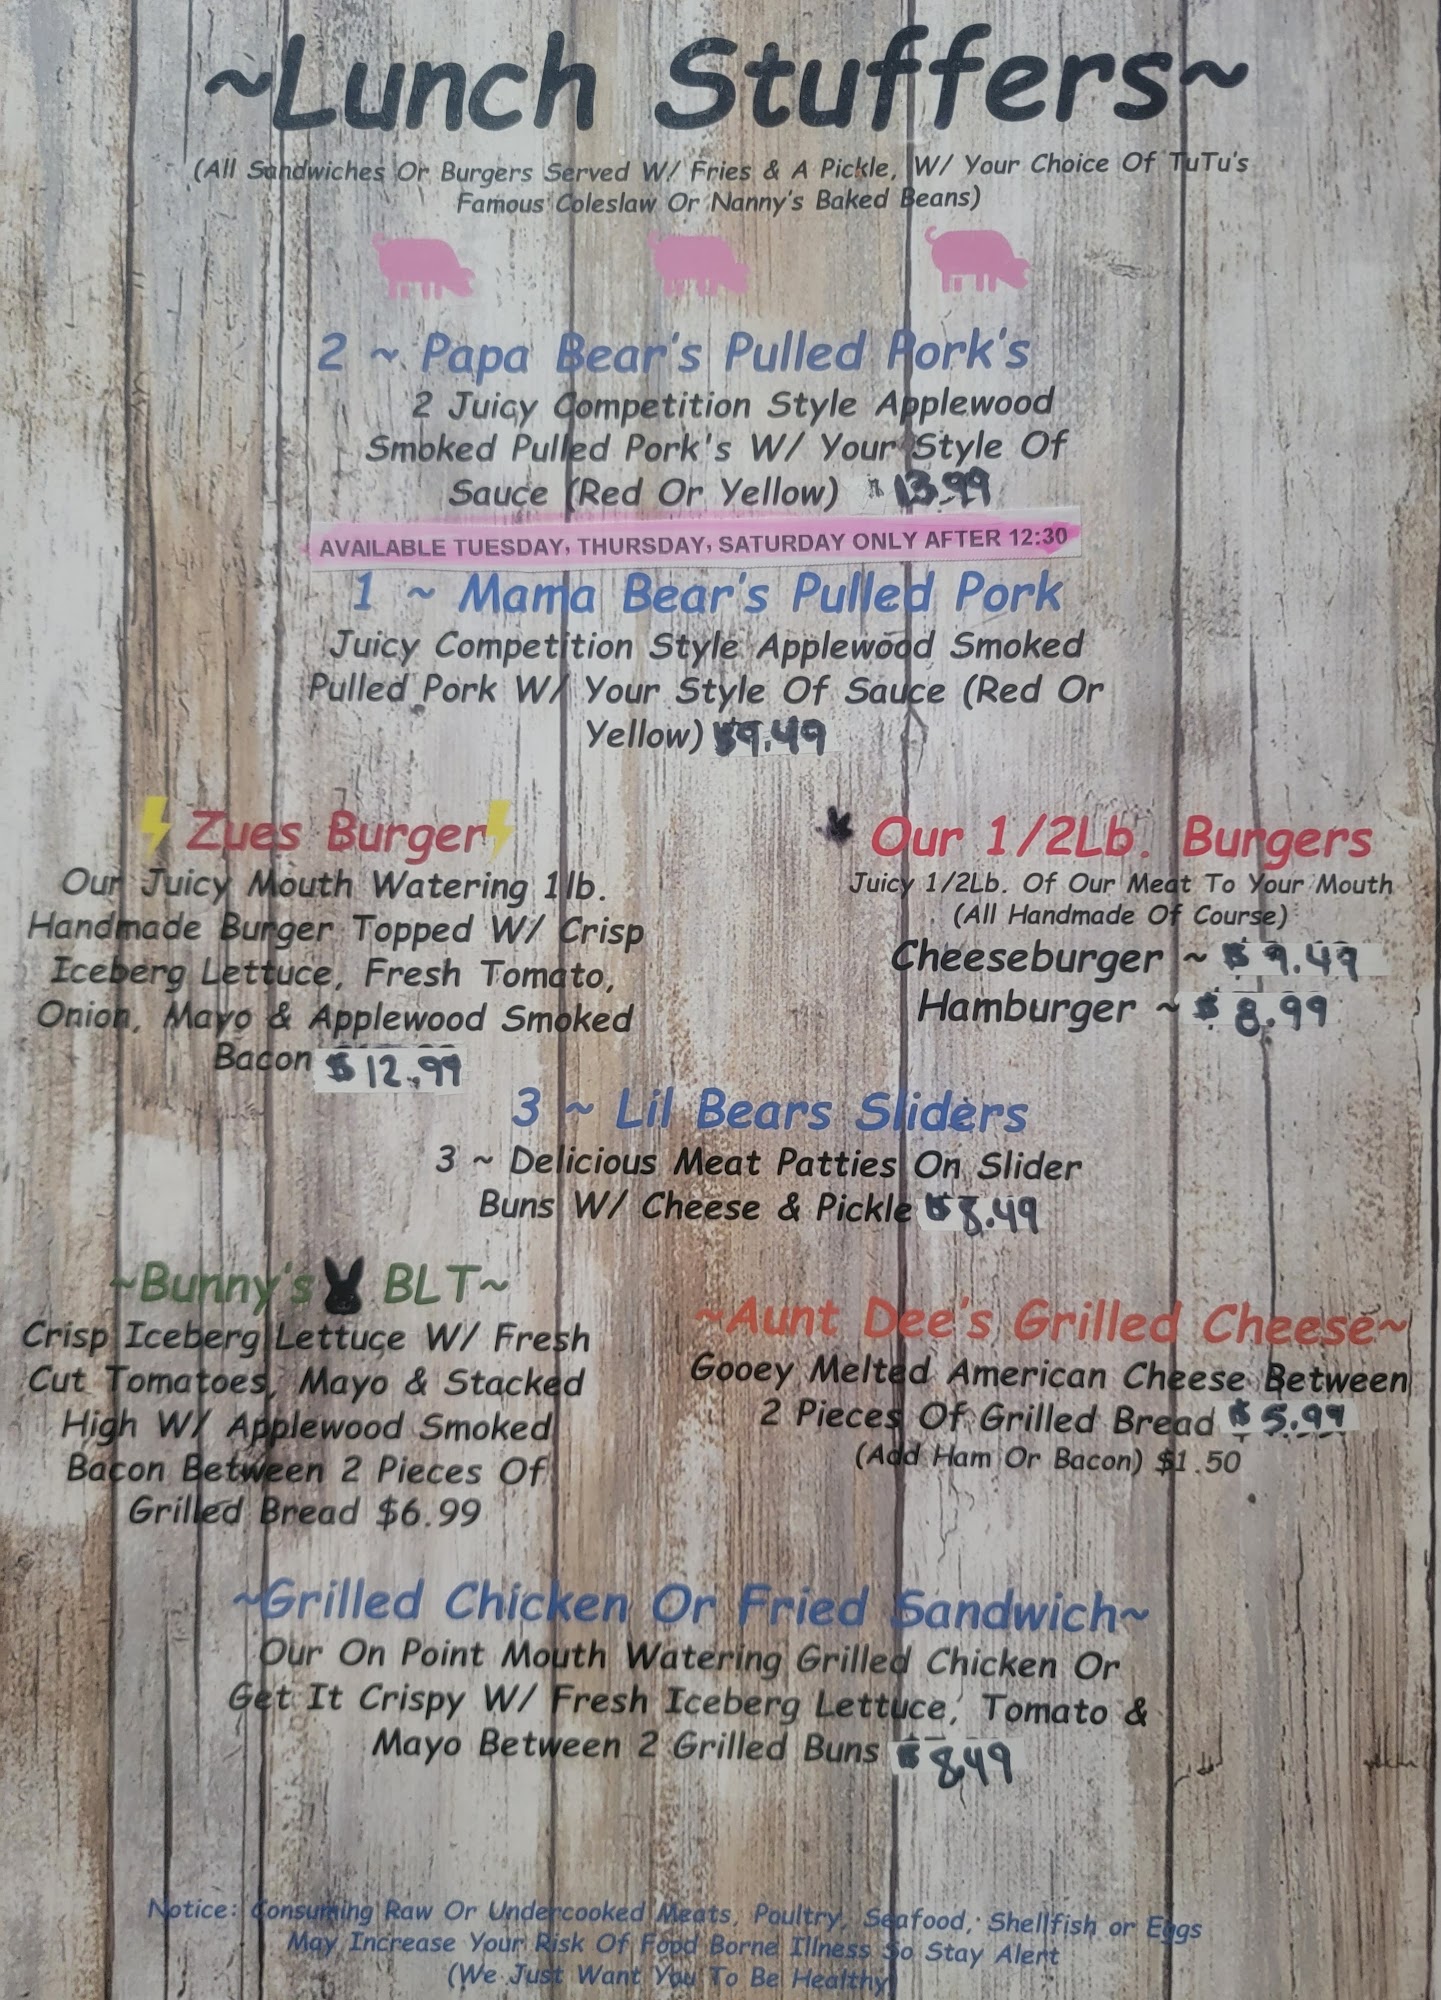 ~Lunch Stuffers~
(All Sandwiches Or Burgers Served W/ Fries & A Pickle, W/ Your Choice Of TuTu's
Famous Coleslaw Or Nanny's Baked Beans)
2 ~ Papa Bear's Pulled Pork's
2 Juicy Competition Style Applewood
Smoked Pulled Pork's W/ Your Style Of
Sauce (Red Or Yellow) $ 13.99
AVAILABLE TUESDAY, THURSDAY, SATURDAY ONLY AFTER 12:30
1 ~ Mama Bear's Pulled Pork
Juicy Competition Style Applewood Smoked
Pulled Pork W/ Your Style Of Sauce (Red Or
Yellow) $9.49
Zues Burger
Our Juicy Mouth Watering 1lb.
Handmade Burger Topped W/ Crisp
Iceberg Lettuce, Fresh Tomato,
Onion, Mayo & Applewood Smoked
Bacon $ 12.99
Our 1/2Lb. Burgers
Juicy 1/2Lb. Of Our Meat To Your Mouth
(All Handmade Of Course)
Cheeseburger ~ $ 9.49
Hamburger ~ $ 8.99
3 ~ Lil Bears Sliders
3 ~ Delicious Meat Patties On Slider
Buns W/ Cheese & Pickle $ 8.49
~Bunny's BLT~
Crisp Iceberg Lettuce W/ Fresh
Cut Tomatoes, Mayo & Stacked
High W/ Applewood Smoked
Bacon Between 2 Pieces Of
Grilled Bread $6.99
~Aunt Dee's Grilled Cheese~
Gooey Melted American Cheese Between
2 Pieces Of Grilled Bread $ 5.99
(Add Ham Or Bacon) $1.50
~Grilled Chicken Or Fried Sandwich~
Our On Point Mouth Watering Grilled Chicken Or
Get It Crispy W/ Fresh Iceberg Lettuce, Tomato &
Mayo Between 2 Grilled Buns $ 8.49
Notice: Consuming Raw Or Undercooked Meats, Poultry, Seafood, Shellfish or Eggs
May Increase Your Risk Of Food Borne Illness So Stay Alert
(We Just Want You To Be Healthy)